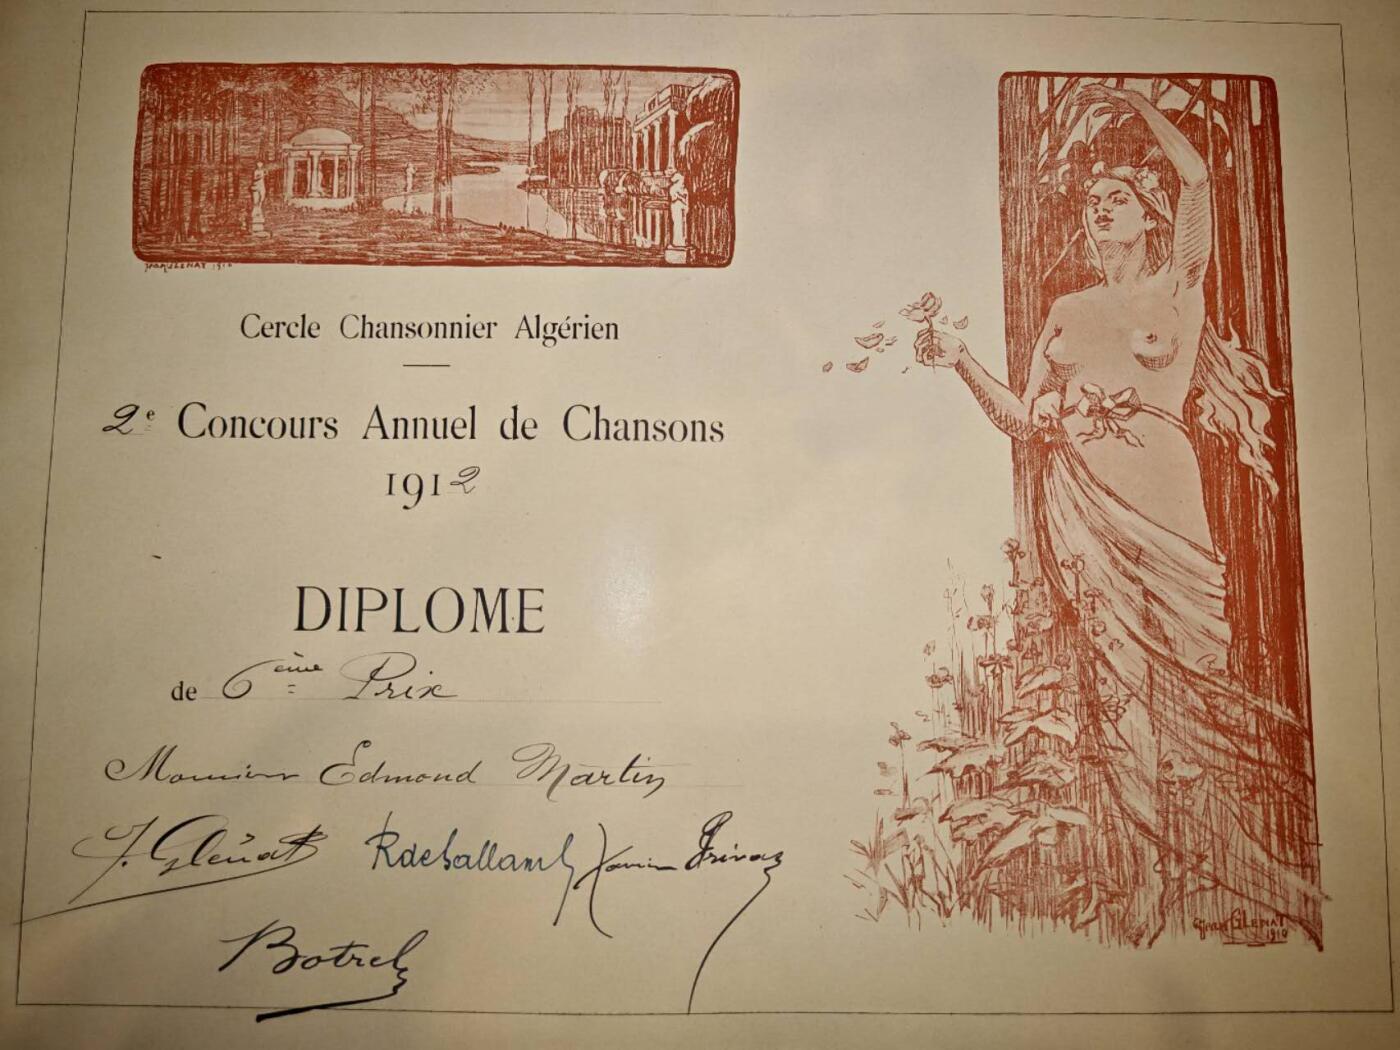 Cercle Chansonnier Algérien
2e Concours Annuel de Chansons
1912
DIPLOME
de 6ème Prix
Monsieur Edmond Martin
J. Glénat Xavier Privas
Botrel
GLENAT
1910